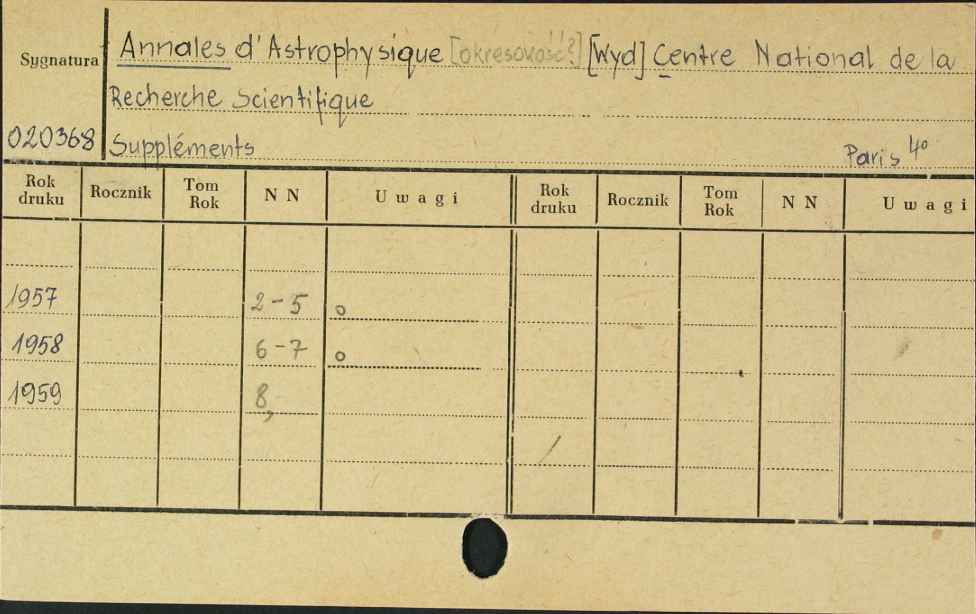 Sygnatura Annales d'Astrophysique [okresowość?] [Wyd] Centre National de la
Recherche Scientifique
020368 Suppléments Paris 4°
Rok druku Rocznik Tom Rok NN Uwagi Rok druku Rocznik Tom Rok NN Uwagi
1957 2-5 o
1958 6-7 o
1959 8,